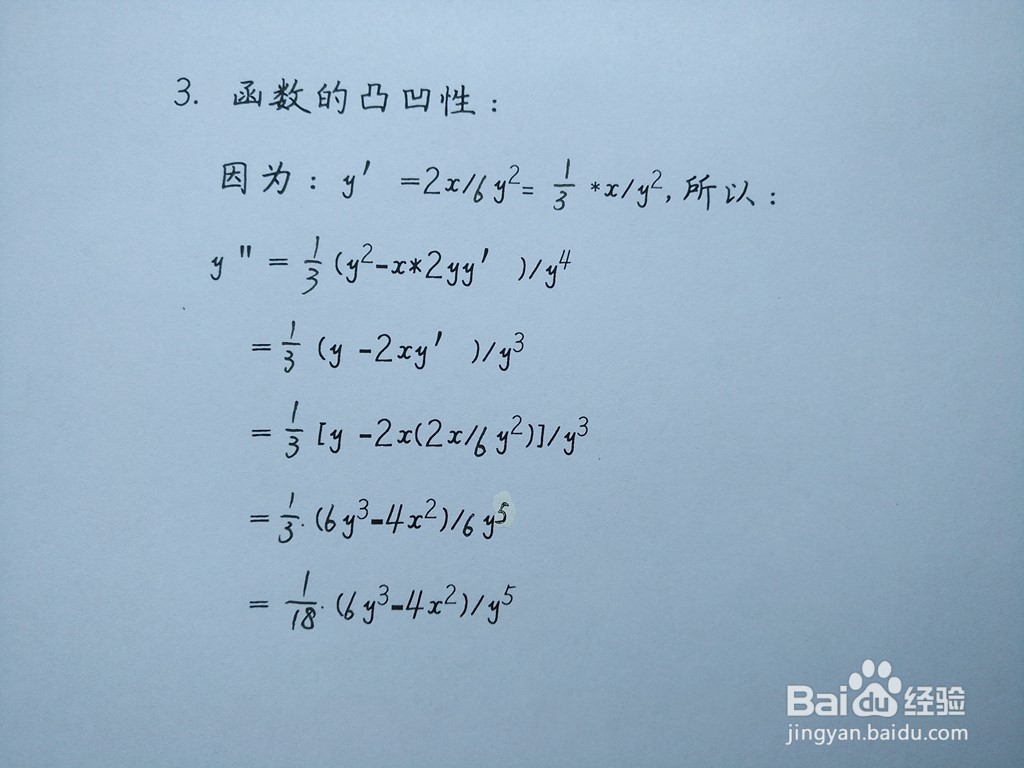 3. 函数的凸凹性:
因为: y' =2x/6y²= 1/3 *x/y², 所以:
y " = 1/3 (y²-x*2yy' )/y⁴
= 1/3 (y -2xy' )/y³
= 1/3 [y -2x(2x/6y²)]/y³
= 1/3. (6y³-4x²)/6y⁵
= 1/18. (6y³-4x²)/y⁵
Bai du 经验
jingyan.baidu.com